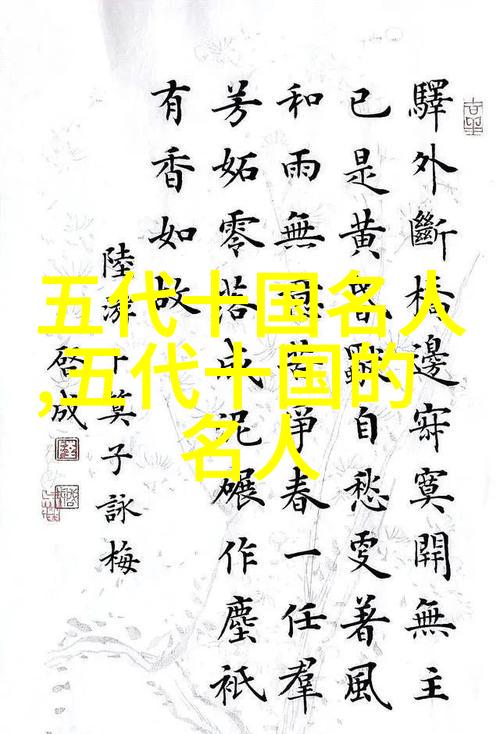 五代十国名人
,五代十国的
名人
驛外斷橋邊寂寞開無主
已是黃昏獨自愁更著風
和雨無意苦爭春一任羣
芳妬零落成泥碾作塵衹
有香如故
陸游卜算子詠梅
啓成